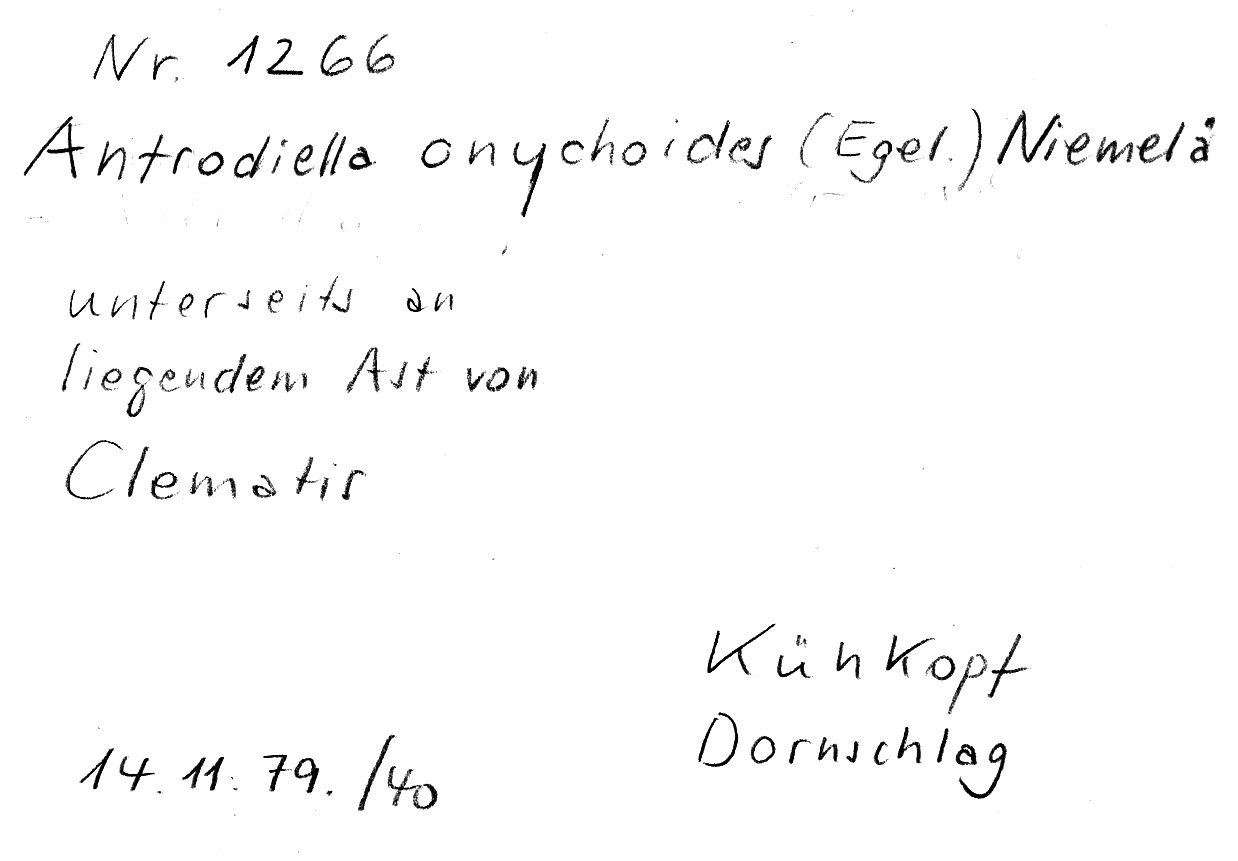 Nr. 1266
Antrodiella onychoides (Egel.) Niemelä
unterseits an
liegendem Ast von
Clematis
Kühkopf
Dornschlag
14. 11. 79. /40